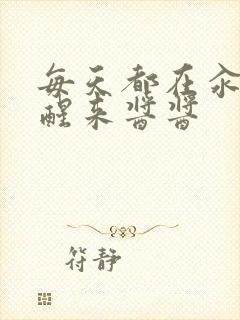 每天都在汆
醒来酱酱
符静